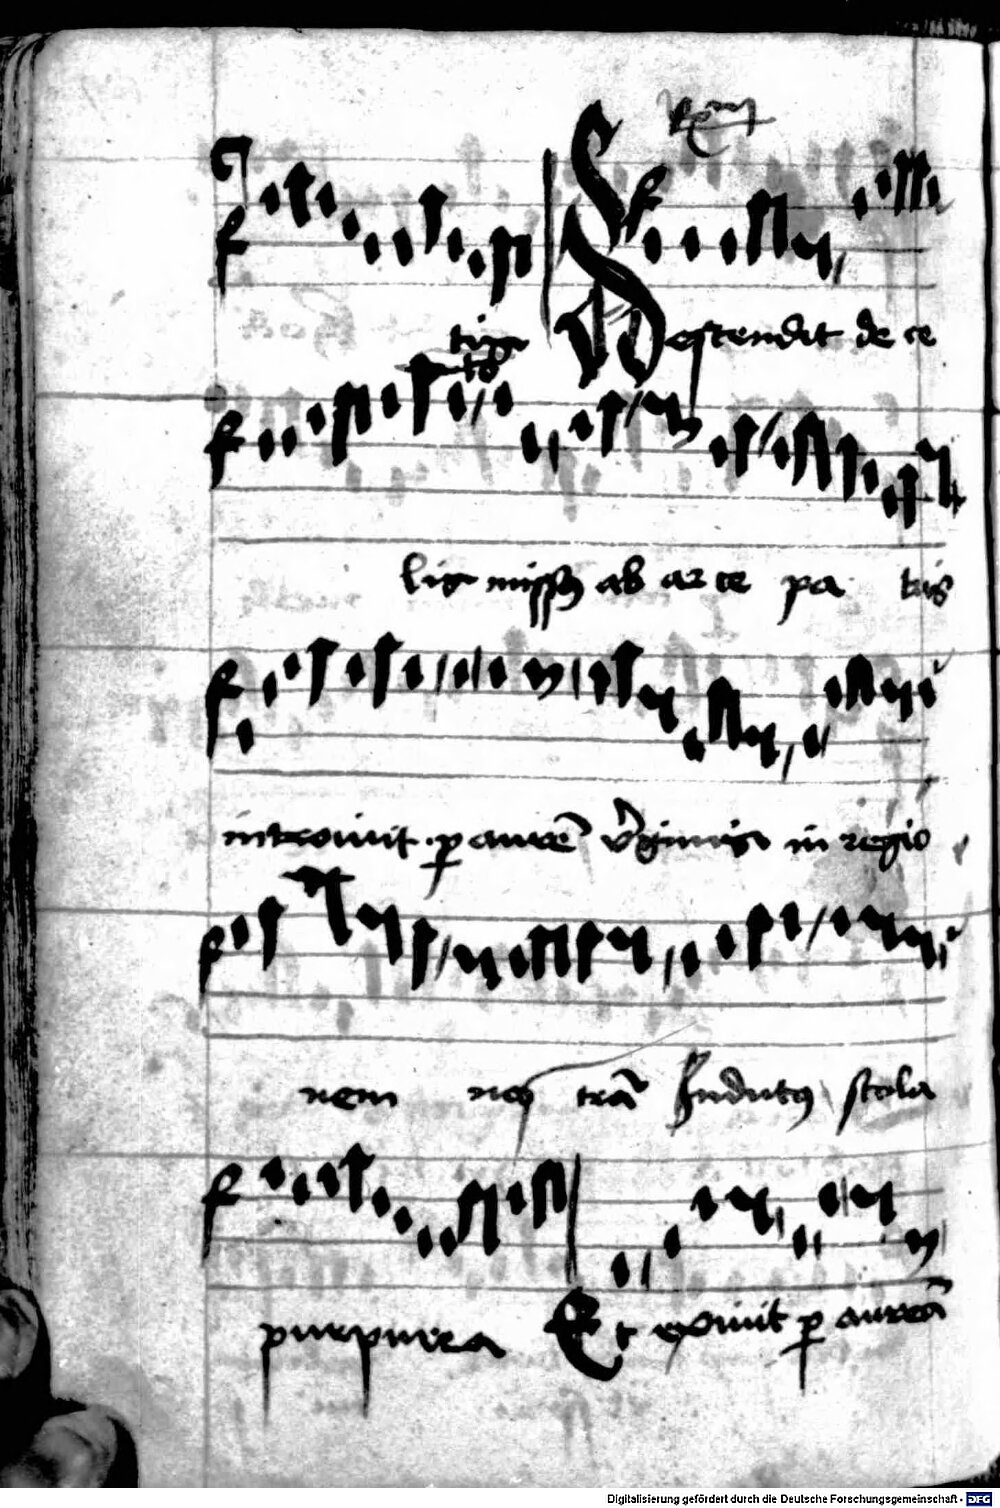 Descendit de ce
lis missus ab arce pa tris
introivit per aurem virginis in regio
nem nos tram Indutus stola
purpurea Et exivit per auream
Digitalisierung gefördert durch die Deutsche Forschungsgemeinschaft - DFG